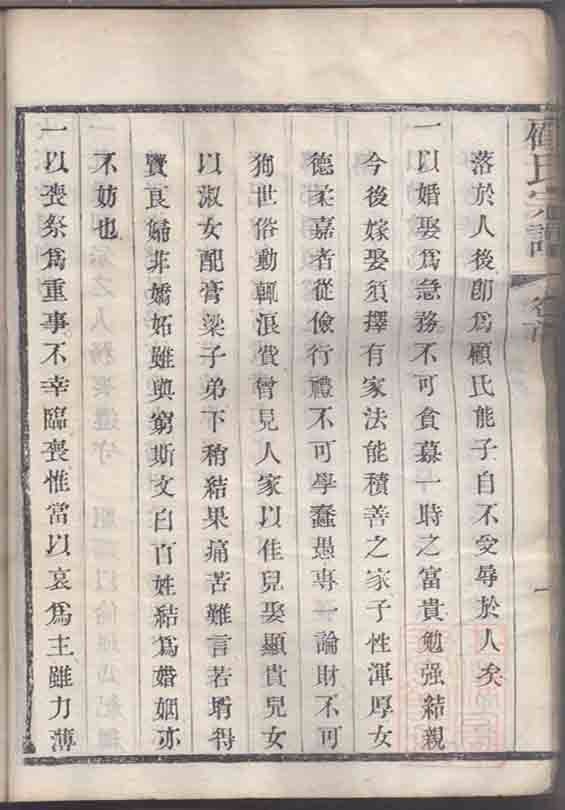 顧氏宗譜
卷首
一
落於人後卽爲顧氏能子自不受辱於人矣
一以婚娶爲急務不可貪慕一時之富貴勉强結親
今後嫁娶須擇有家法能積善之家子性渾厚女
德柔嘉者從儉行禮不可學蠢愚專一論財不可
狥世俗動輒浪費曾見人家以佳兒娶顯貴兒女
以淑女配膏粱子弟下稍結果痛苦難言若壻得
賢良婦非嬌妬雖與窮斯文白百姓結爲婚姻亦
不妨也
一以喪祭爲重事不幸臨喪惟當以哀爲主雖力薄